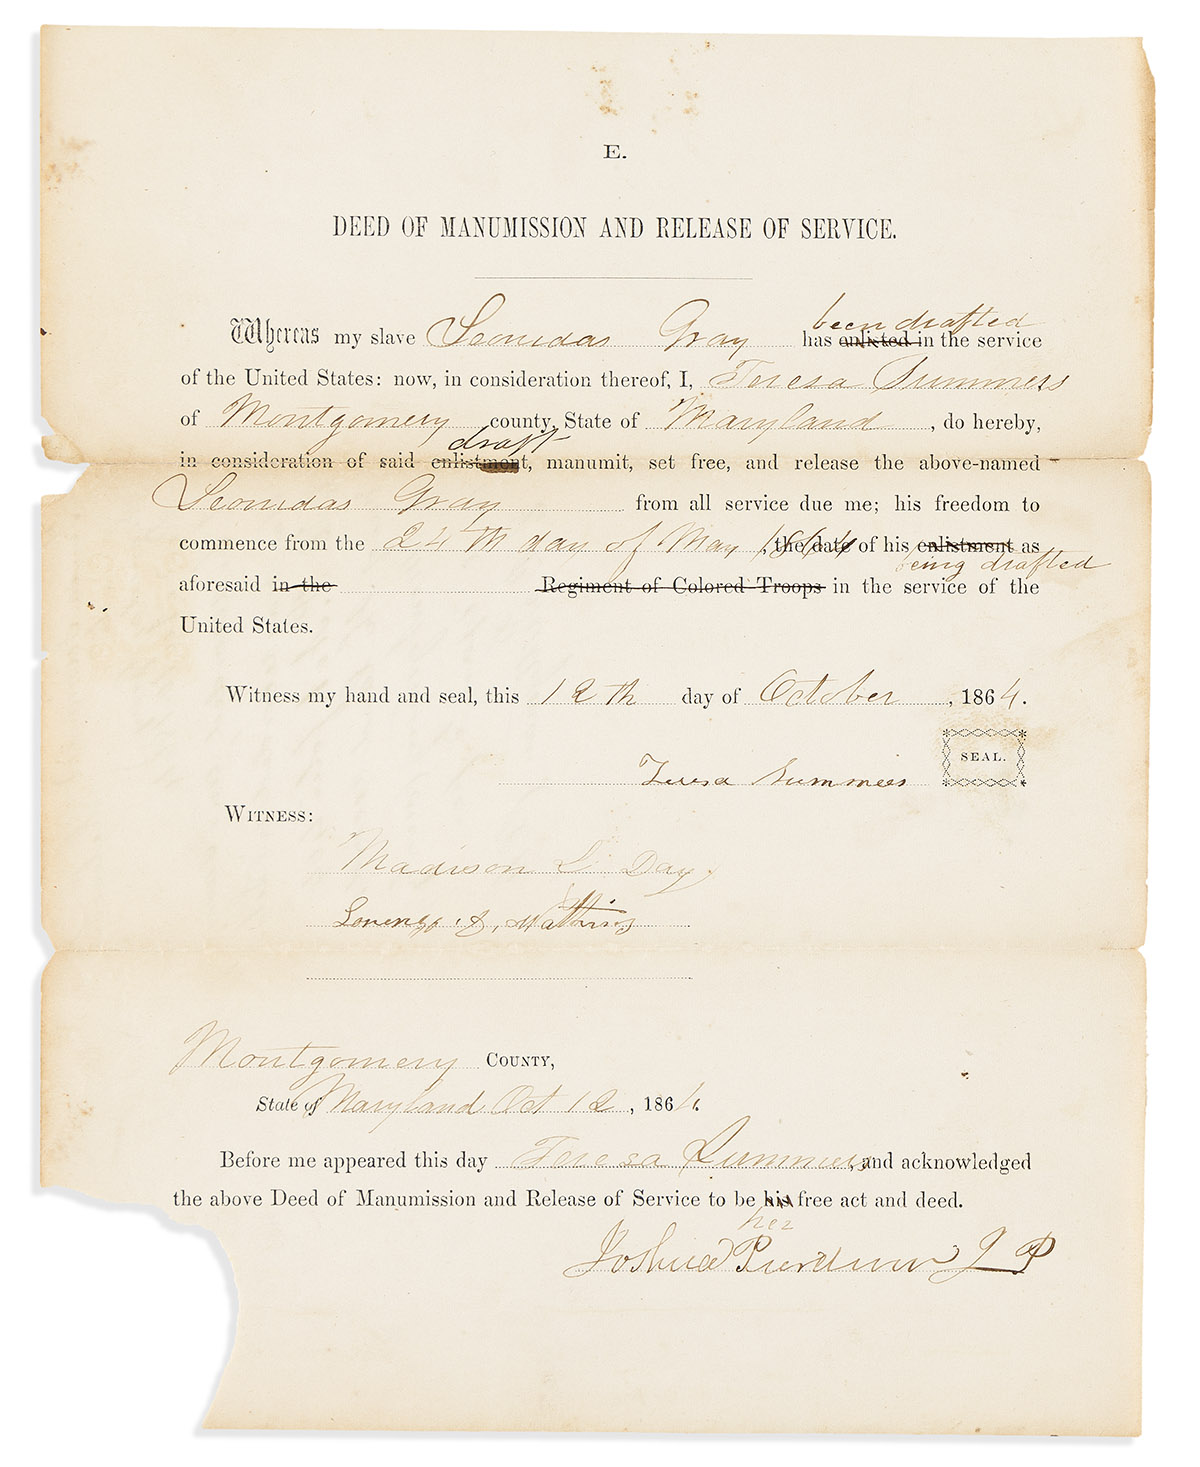 E.
DEED OF MANUMISSION AND RELEASE OF SERVICE.
been drafted
Whereas my slave Leonidas Gray has enlisted in the service
of the United States: now, in consideration thereof, I, Teresa Summers
of Montgomery county, State of Maryland, do hereby,
draft
in consideration of said enlistment, manumit, set free, and release the above-named
Leonidas Gray from all service due me; his freedom to
commence from the 24th day of May 1864, the date of his enlistment as
being drafted
aforesaid in the Regiment of Colored Troops in the service of the
United States.
Witness my hand and seal, this 12th day of October, 1864.
Teresa Summers SEAL.
WITNESS:
Madison Day
Lorenzo Mathis
Montgomery COUNTY,
State of Maryland Oct 12, 1864.
Before me appeared this day Teresa Summers, and acknowledged
the above Deed of Manumission and Release of Service to be his free act and deed.
her
Joshua Purdum J P